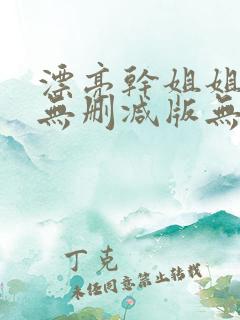 漂亮幹姐姐
無刪减版無
丁克
未经同意禁止转载